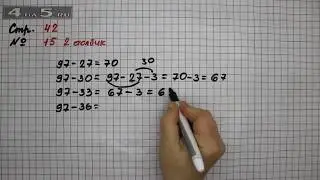 4 па 5.ru
Стр. 42
№ 15 2 столбик
97-27=70
30
97-30= 97-27-3=70-3=67
97-33= 67-3=6
97-36=